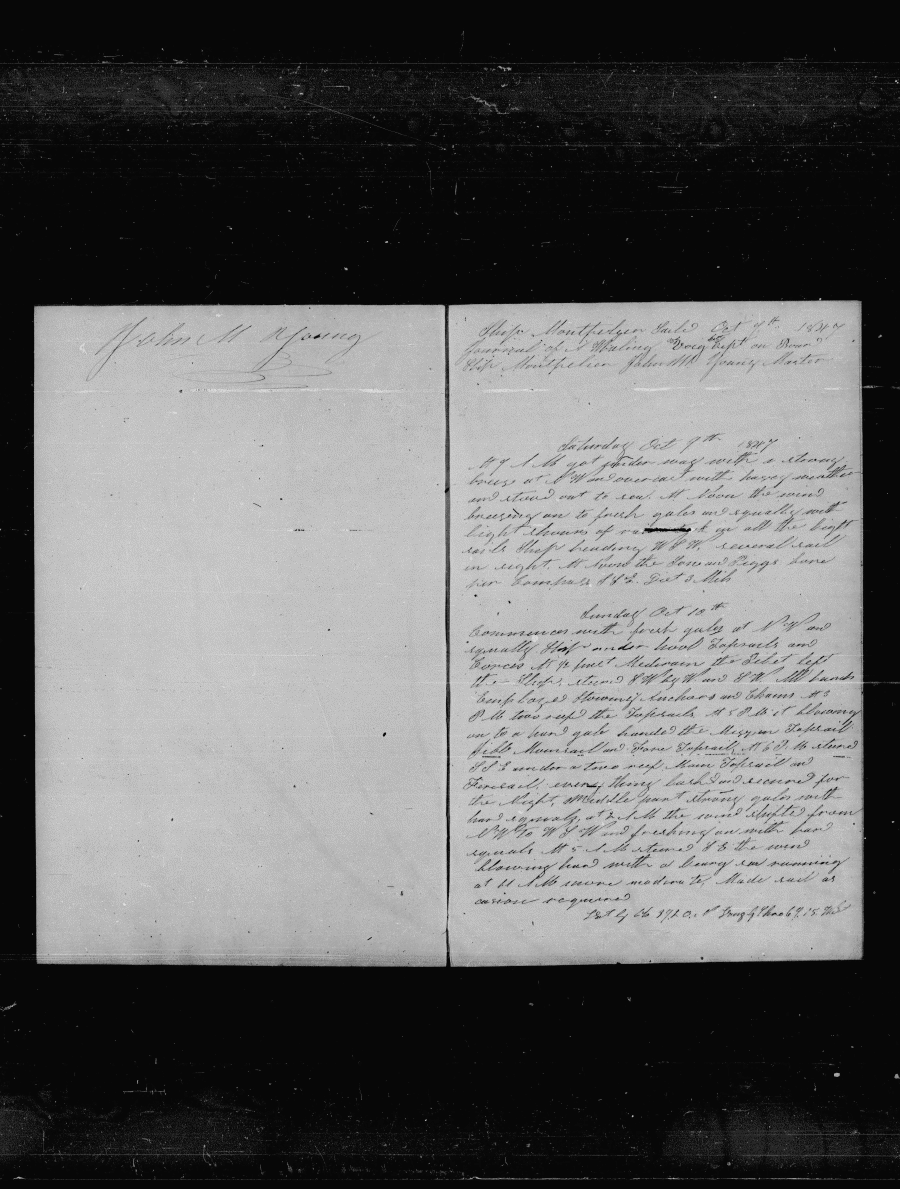 John M Young
Ship Montpelier Saild Oct 9th 1847
Journal of A Whaling Voig Kept on Board
Ship Montpelier John M Young Master
Saturday Oct 9th 1847
At 9 A M got under way with a strong
breeze at N W and overcast with heavy weather
and stood out to sea. At Noon the wind
breezing on to fresh gales and squally with
light showers of all the light
sails Ship heading W S W. several sail
in sight. At Noon the bore
per Compass Dist 3 Mils
Sunday Oct 10th
Commences with fresh gales at N W and
squally Ship under hool Topsails and
Corces At past Mederain the Pilot left
the Ship, steerd S W by W and S W. All hands
Employed Stowing Anchors and Chains At 3
P M tow reef the Topsails At 5 P M it blowing
on to a hard gale handed the Mizzen Topsail
Jibb Mainsail and Fore Topsail, At 6 P. M steerd
S S E under a two reef Main Topsail and
Foresail, every thing lashd and secured for
the Night, Middle part strong gales with
hard squals, at 2 A M the wind shifted from
N W To W S W and freshing on with hard
squals At 5 A M steerd S E the wind
blowing hard with a heavy sea running
at 11 A M more moderate, Made sail as
casion required
Lat by Ob Long by